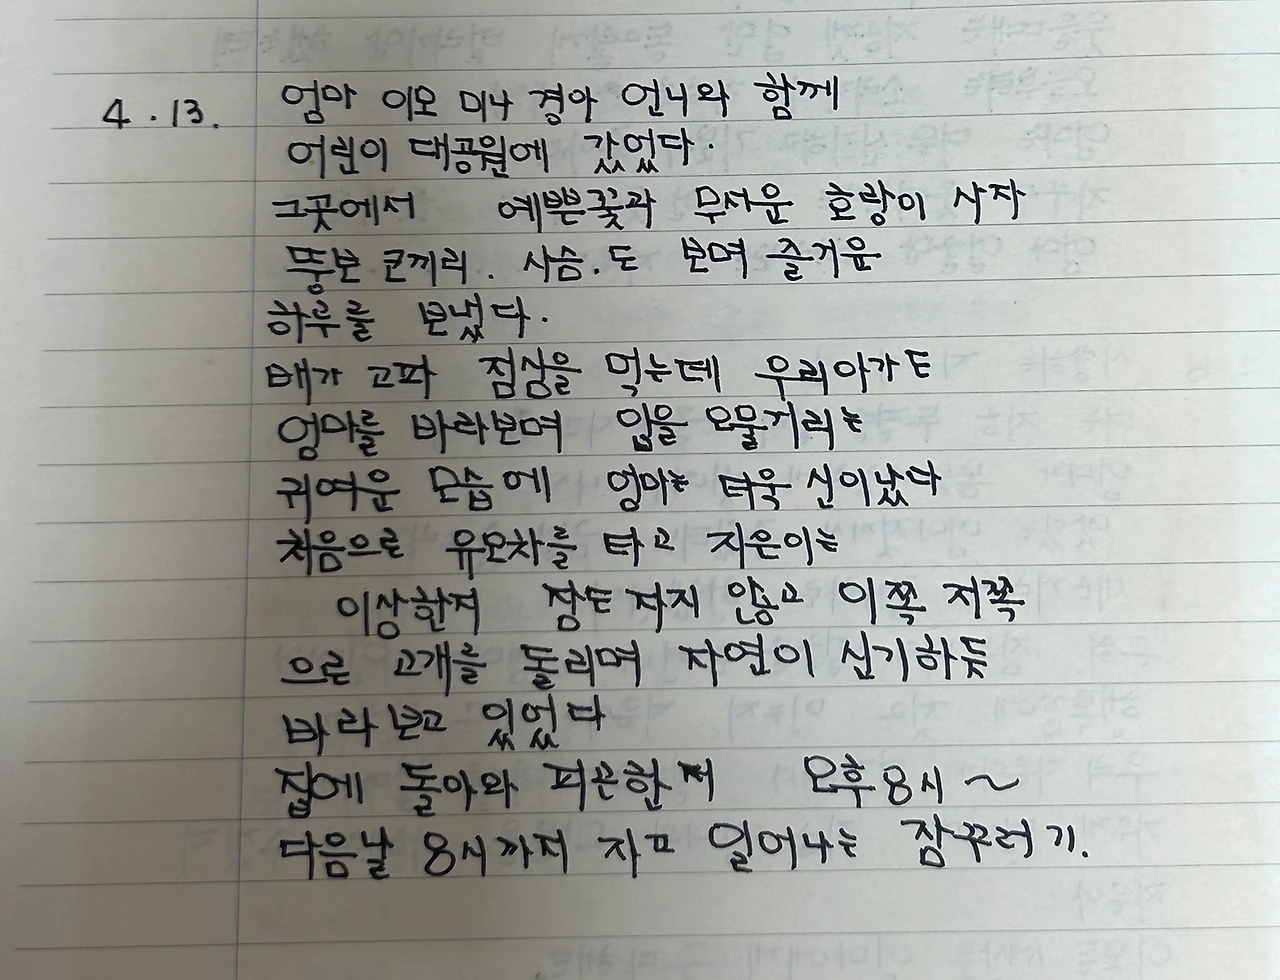 4.13. 엄마 이모 미나 경아 언니와 함께
어린이 대공원에 갔었다.
그곳에서 예쁜꽃과 무서운 호랑이 사자
뚱보 코끼리. 사슴.도 보며 즐거운
하루를 보냈다.
배가 고파 점심을 먹는데 우리아가도
엄마를 바라보며 입을 오물거리는
귀여운 모습에 엄마는 더욱 신이났다
처음으로 유모차를 타고 지은이는
이상한지 잠도 자지 않고 이쪽 저쪽
으로 고개를 돌리며 자연이 신기하듯
바라보고 있었다
집에 돌아와 피곤한지 오후 8시 ~
다음날 8시까지 자고 일어나는 잠꾸러기.